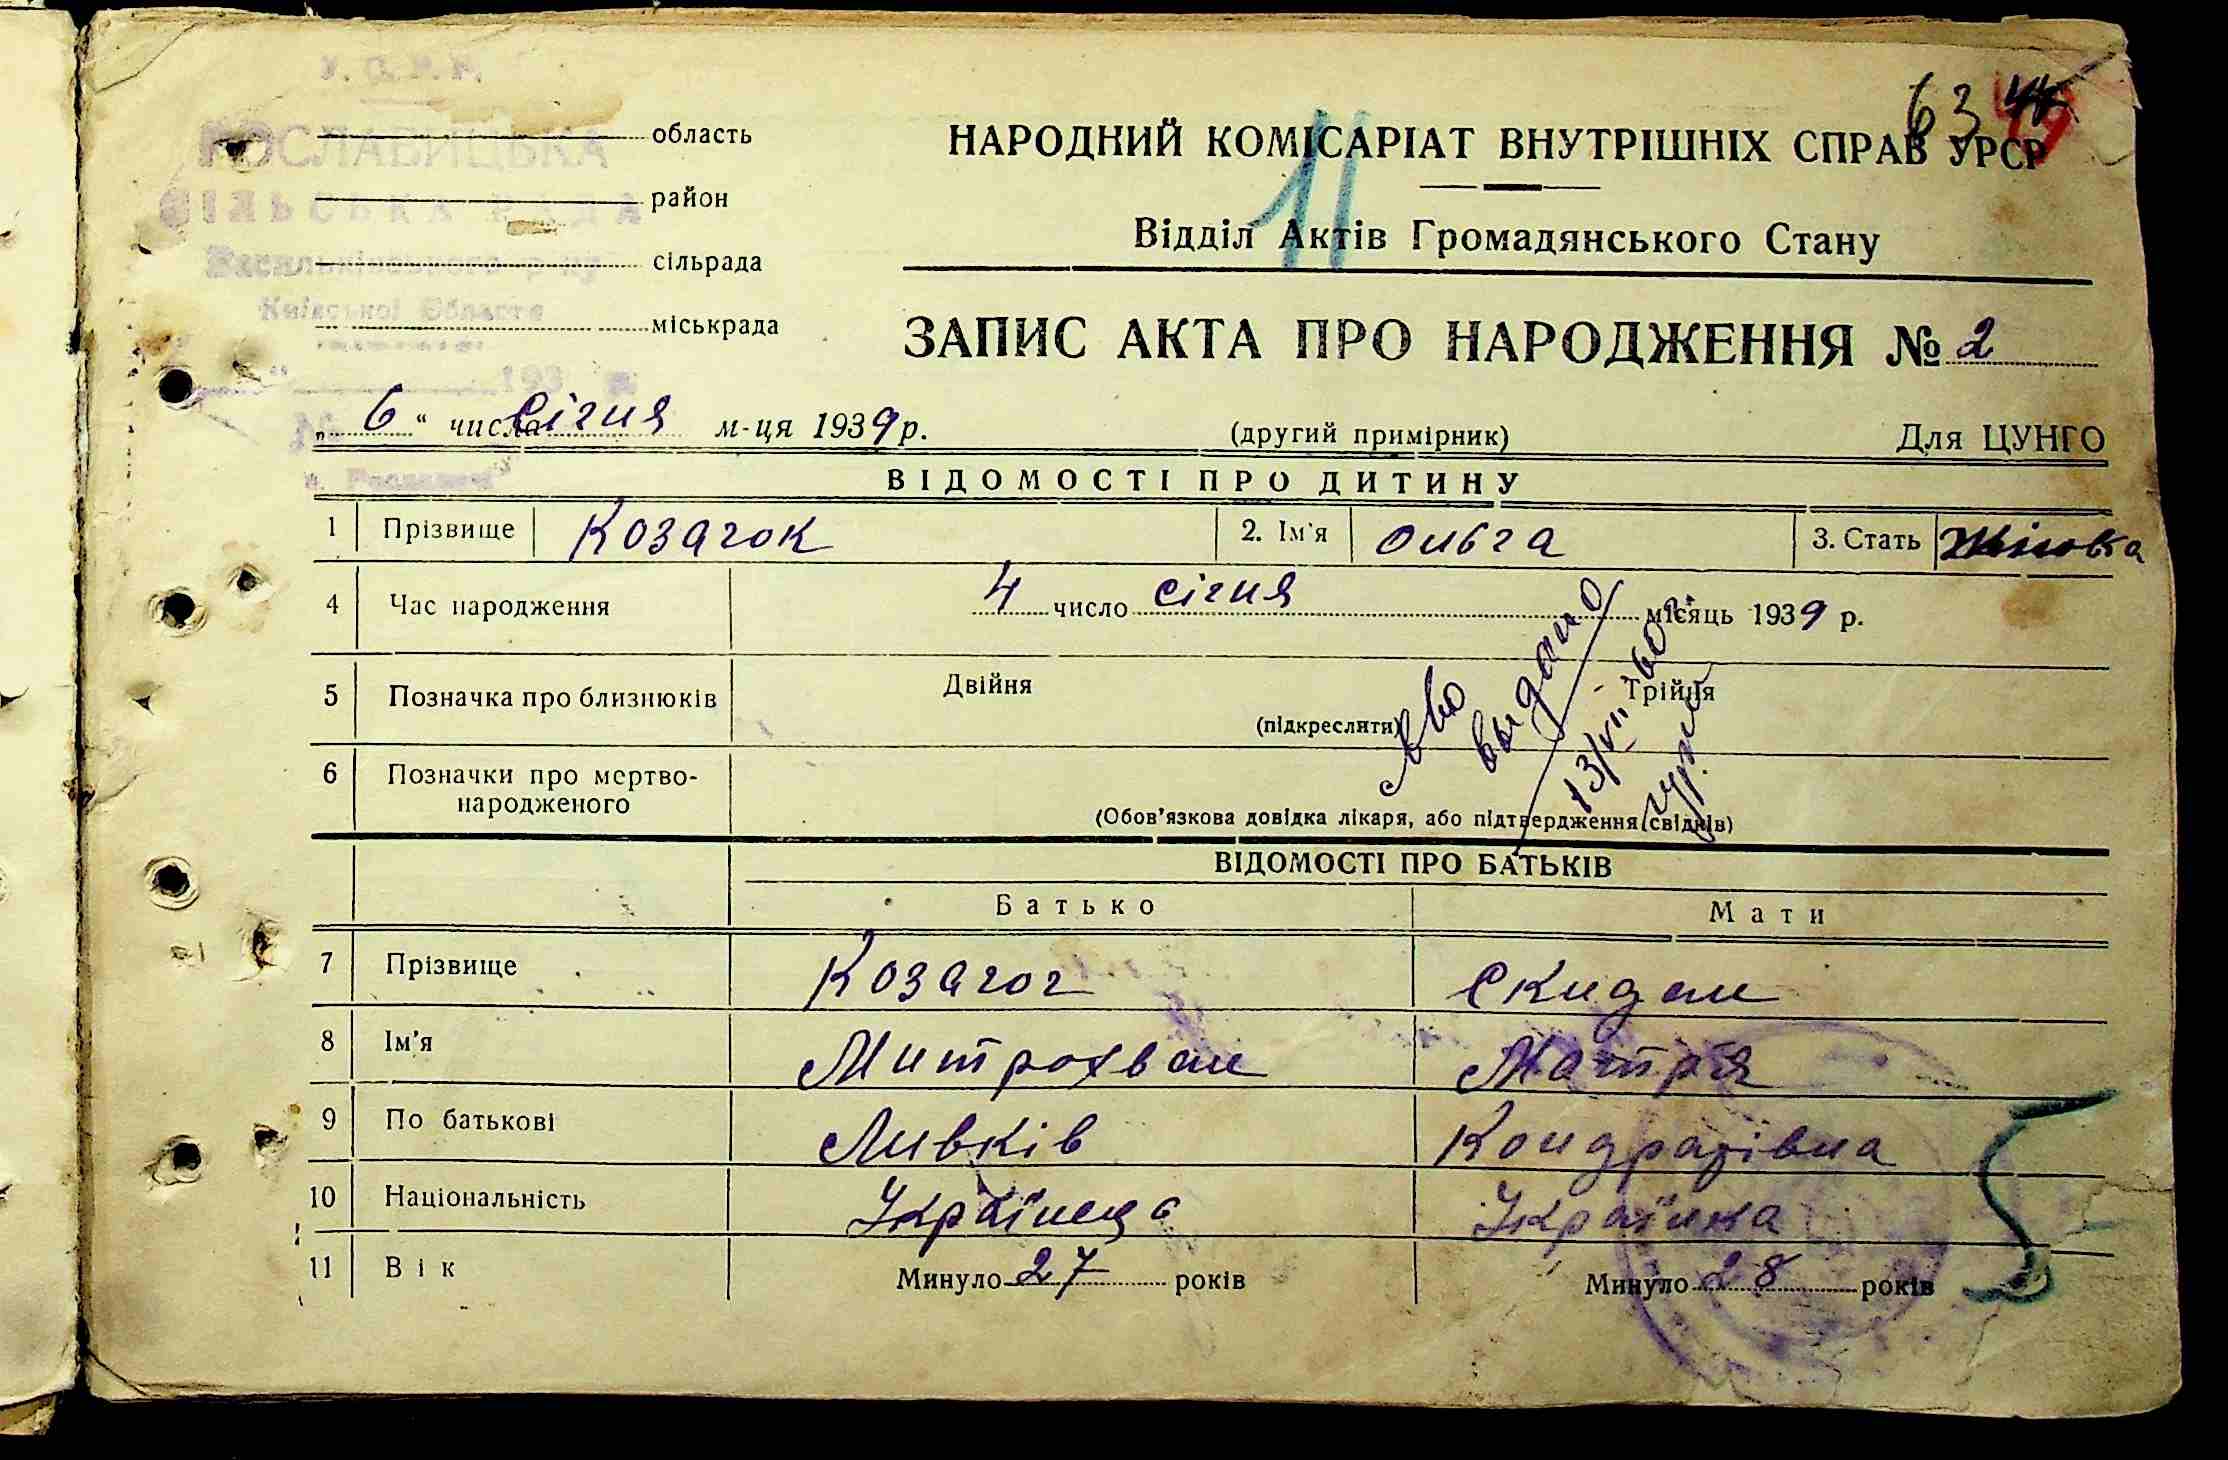 У. С. Р. Р.
РОСЛАВИЦЬКА
СІЛЬСЬКА РАДА
Васильківського р-ну
Київської Області
193
область
район
сільрада
міськрада
63
НАРОДНИЙ КОМІСАРІАТ ВНУТРІШНІХ СПРАВ УРСР
11
Відділ Актів Громадянського Стану
ЗАПИС АКТА ПРО НАРОДЖЕННЯ № 2
„ 6 “ числа Січня м-ця 1939 р.
(другий примірник)
Для ЦУНГО
ВІДОМОСТІ ПРО ДИТИНУ
1 Прізвище Козачок 2. Ім'я Ольга 3. Стать Жіновка
4 Час народження 4 число січня місяць 1939 р.
5 Позначка про близнюків Двійня Трійня
(підкреслити)
6 Позначки про мертво-
народженого
(Обов'язкова довідка лікаря, або підтвердження свідків)
выдано
13/VII-60
ВІДОМОСТІ ПРО БАТЬКІВ
Батько Мати
7 Прізвище Козачок Скидан
8 Ім'я Митрохван Мотря
9 По батькові Ливків Кондратівна
10 Національність Українець Українка
11 Вік Минуло 27 років Минуло 28 років